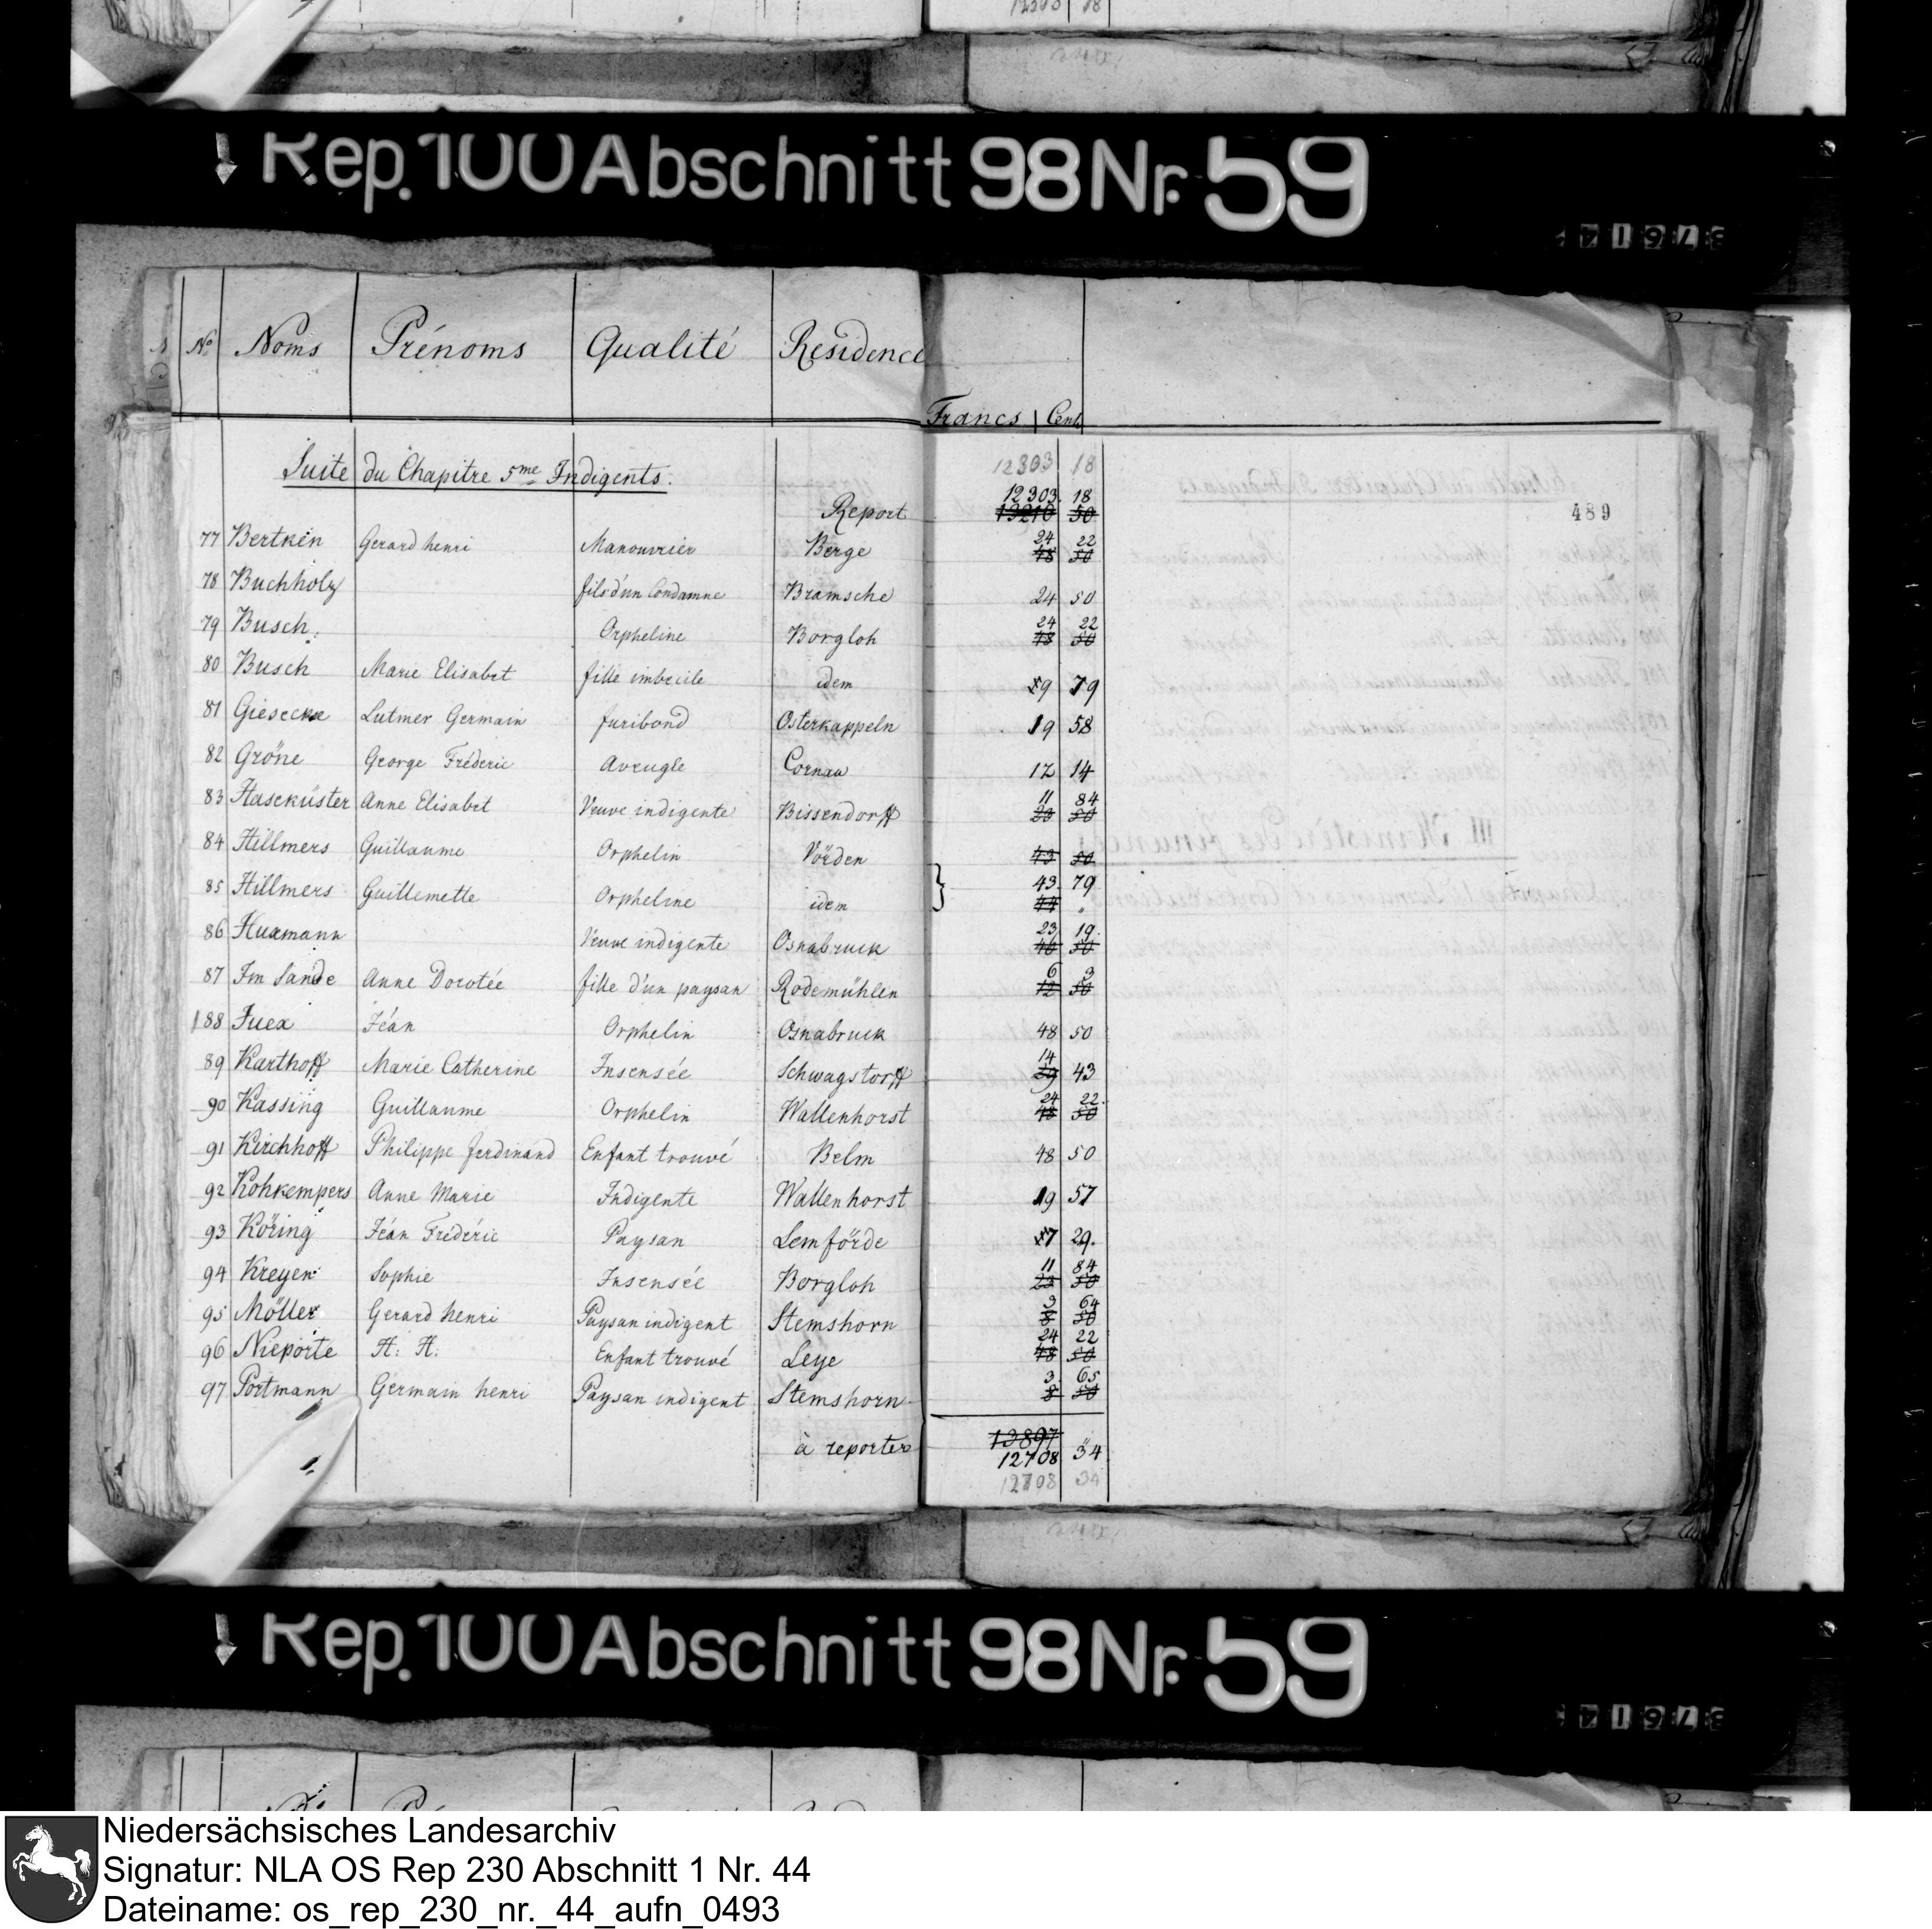 12303 18
Rep. 100 Abschnitt 98 Nr. 59
37614
No Noms Prénoms Qualité Residence
Francs Cent.
Suite du Chapitre 5me Indigents.
12303 18
12303. 18
Report 13210 50
489
24 22
77 Bertken Gerard henri Manouvrier Berge 48 50
78 Buchholz fils d'un Condamne Bramsche 24 50
24 22
79 Busch. Orpheline Borgloh 48 50
80 Busch Marie Elisabet fille imbecile idem 9 79
81 Giesecke Lutmer Germain furibond Osterkappeln 19 58
82 Gröne George Fréderic Aveugle Cornau 12 14
11 84
83 Haseküster Anne Elisabet Veuve indigente Bissendorff 23 50
84 Hillmers Guillaume Orphelin Vörden 43 50
43. 79
85 Hillmers Guillemette Orpheline idem 44 "
23 19.
86 Huxmann Veuve indigente Osnabruck 46 50
6 3
87 Im Sande Anne Dorotée fille d'un paysan Rodemühlen 12 50
188 Juex Jéan Orphelin Osnabruck 48 50
14
89 Karthoff Marie Catherine Insensée Schwagstorff 29 43
24 22.
90 Kassing Guillaume Orphelin Wallenhorst 48 50
91 Kirchhoff Philippe ferdinand Enfant trouvé Belm 48 50
92 Kohkempers Anne Marie Indigente Wallenhorst 19 57
93 Köring Jéan Fréderic Paysan Lemförde 7 29.
11 84
94 Kreyen Sophie Insensée Borgloh 23 50
3 64
95 Möller Gerard henri Paysan indigent Stemshorn 8 50
24 22
96 Nieporte H: H: Enfant trouvé Leye 48 50
3. 65
97 Portmann Germain henri Paysan indigent Stemshorn 8 50
13897 "
à reporter 12708 34
12708 34
Rep. 100 Abschnitt 98 Nr. 59
37614
Niedersächsisches Landesarchiv
Signatur: NLA OS Rep 230 Abschnitt 1 Nr. 44
Dateiname: os_rep_230_nr._44_aufn_0493